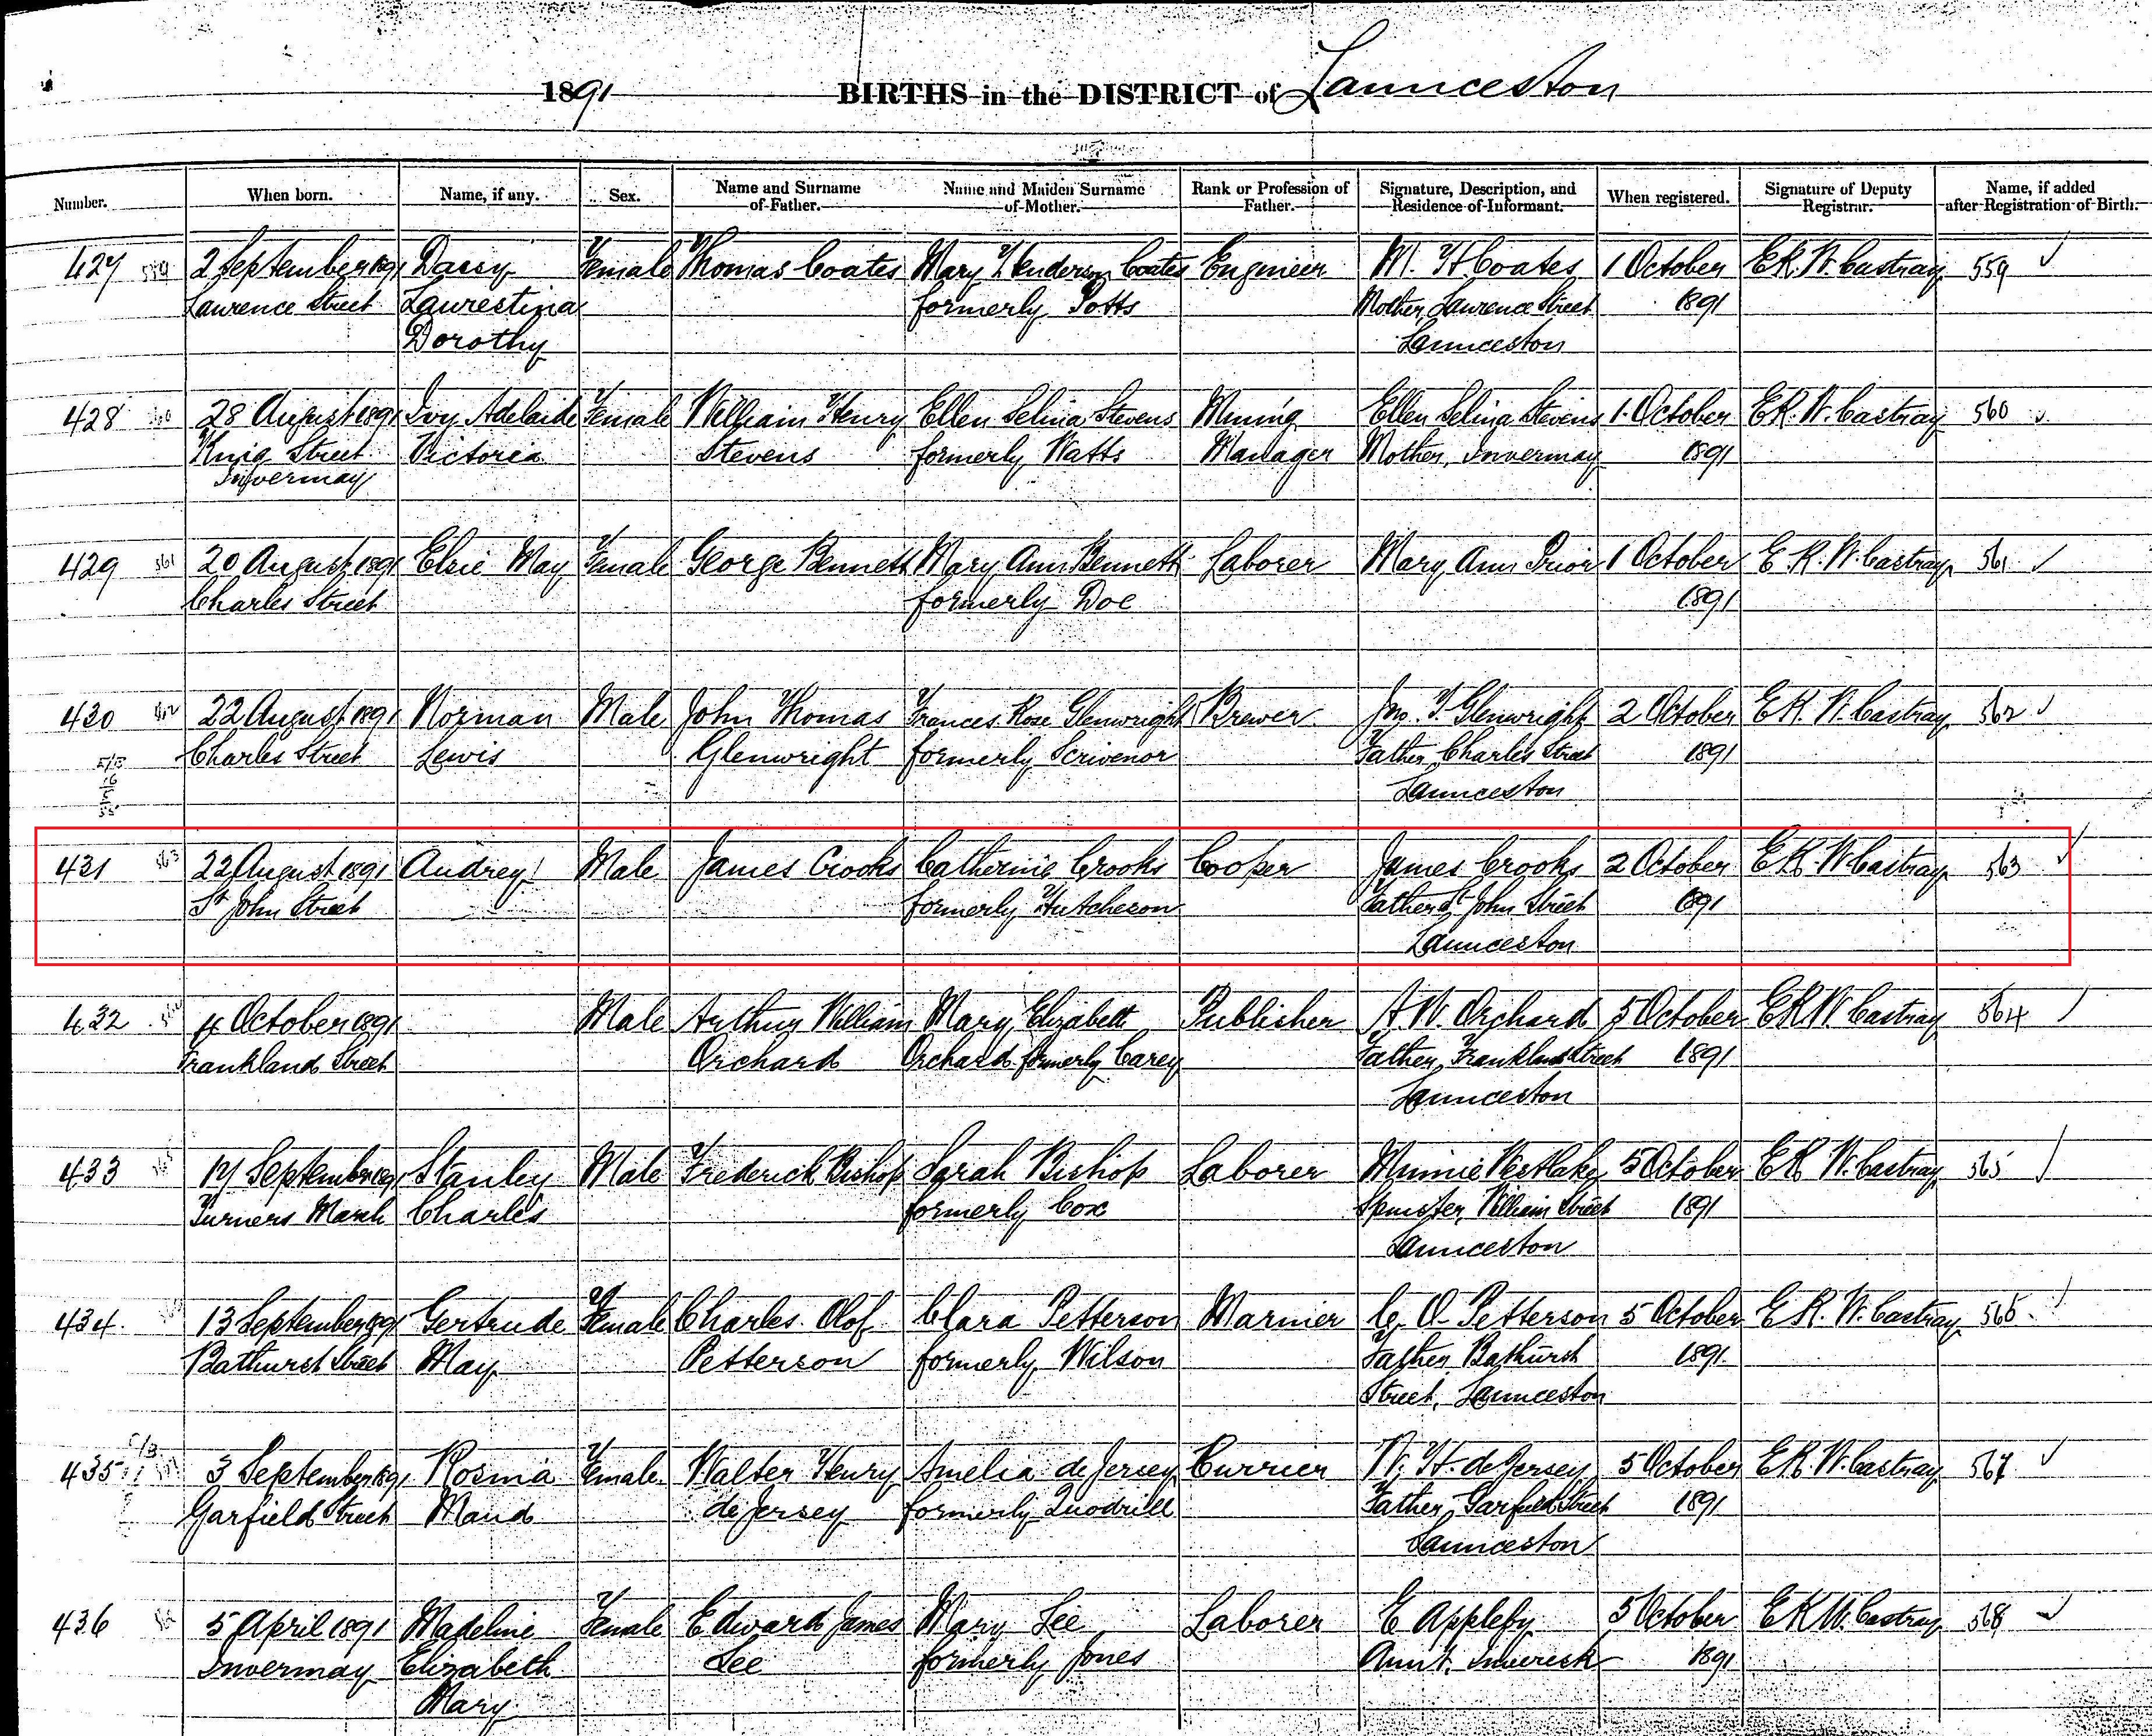 1891 BIRTHS in the DISTRICT of Launceston
Number. When born. Name, if any. Sex. Name and Surname of Father. Name and Maiden Surname of Mother. Rank or Profession of Father. Signature, Description, and Residence of Informant. When registered. Signature of Deputy Registrar. Name, if added after Registration of Birth.
427 559 2 September 1891 Daisy Female Thomas Coates Mary Henderson Coates Engineer M. H. Coates 1 October E.R.W. Castray 559
Laurence Street Laurestina formerly Potts Mother, Laurence Street 1891
Dorothy Launceston
428 28 August 1891 Ivy Adelaide Female William Henry Ellen Selina Stevens Mining Ellen Selina Stevens 1 October E.R.W. Castray 560
King Street Victoria Stevens formerly Watts Manager Mother, Invermay 1891
Invermay
429 561 20 August 1891 Elsie May Female George Bennett Mary Ann Bennett Laborer Mary Ann Prior 1 October E.R.W. Castray 561
Charles Street formerly Doe 1891
430 562 22 August 1891 Norman Male John Thomas Frances Rose Glenwright Brewer Jno. T. Glenwright 2 October E.R.W. Castray 562
Charles Street Lewis Glenwright formerly Scrivenor Father, Charles Street 1891
Launceston
431 563 22 August 1891 Audrey Male James Crooks Catherine Crooks Cooper James Crooks 2 October E.R.W. Castray 563
St John Street formerly Hutcheson Father St John Street 1891
Launceston
432 4 October 1891 Male Arthur William Mary Elizabeth Publisher A.W. Orchard 5 October E.R.W. Castray 564
Frankland Street Orchard Orchard formerly Carey Father, Frankland Street 1891
Launceston
433 565 17 September 1891 Stanley Male Frederick Bishop Sarah Bishop Laborer Minnie Westlake 5 October E.R.W. Castray 565
Turners Marsh Charles formerly Cox Spinster, William Street 1891
Launceston
434 13 September 1891 Gertrude Female Charles Olof Clara Petterson Mariner C. O. Petterson 5 October E.R.W. Castray 566
Bathurst Street May Petterson formerly Wilson Father, Bathurst 1891
Street, Launceston
435 3 September 1891 Rosina Female Walter Henry Amelia de Jersey Currier W. H. de Jersey 5 October E.R.W. Castray 567
Garfield Street Maud de Jersey formerly Quodrill Father, Garfield Street 1891
Launceston
436 5 April 1891 Madeline Female Edward James Mary Lee Laborer E Appleby 5 October E.R.W. Castray 568
Invermay Elizabeth Lee formerly Jones Aunt, Inveresk 1891
Mary